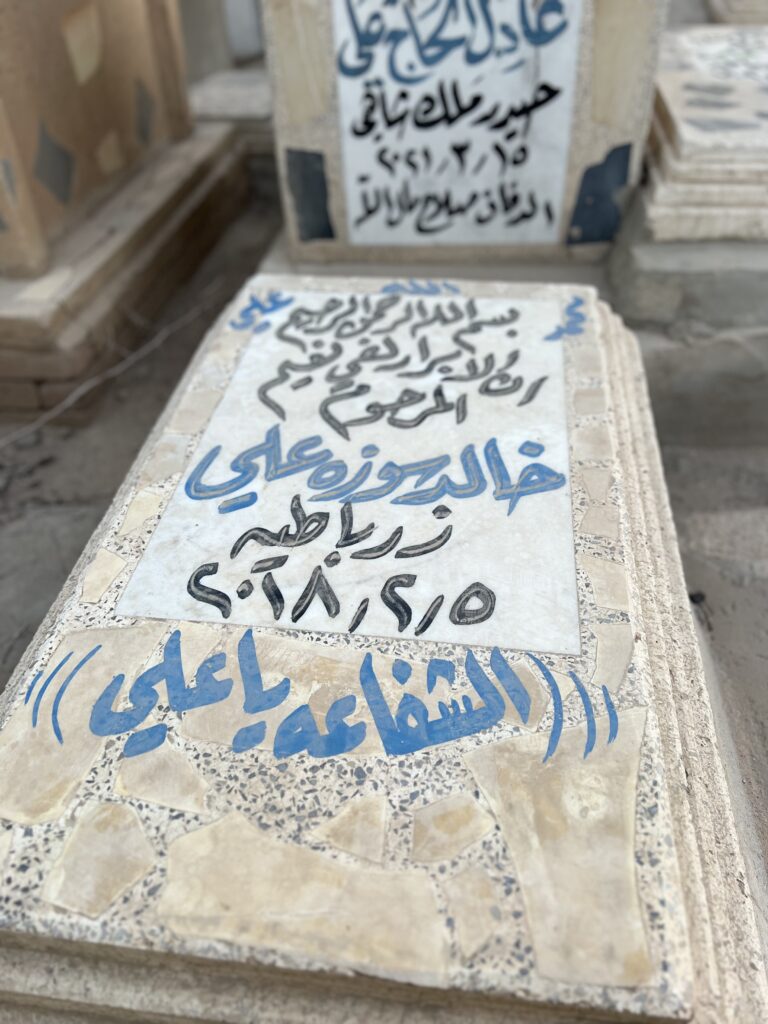 عادل الحاج علي
حيدر ملك شاقي
٢٠٢١/٣/١٥
الدفان صلاح ملا الا
الله
علي
محمد
بسم الله الرحمن الرحيم
ان الابرار لفي نعيم
المرحوم
خالد سوزه علي
زرباطيه
٢٠١٨/٢/٥
(((الشفاعه يا علي)))